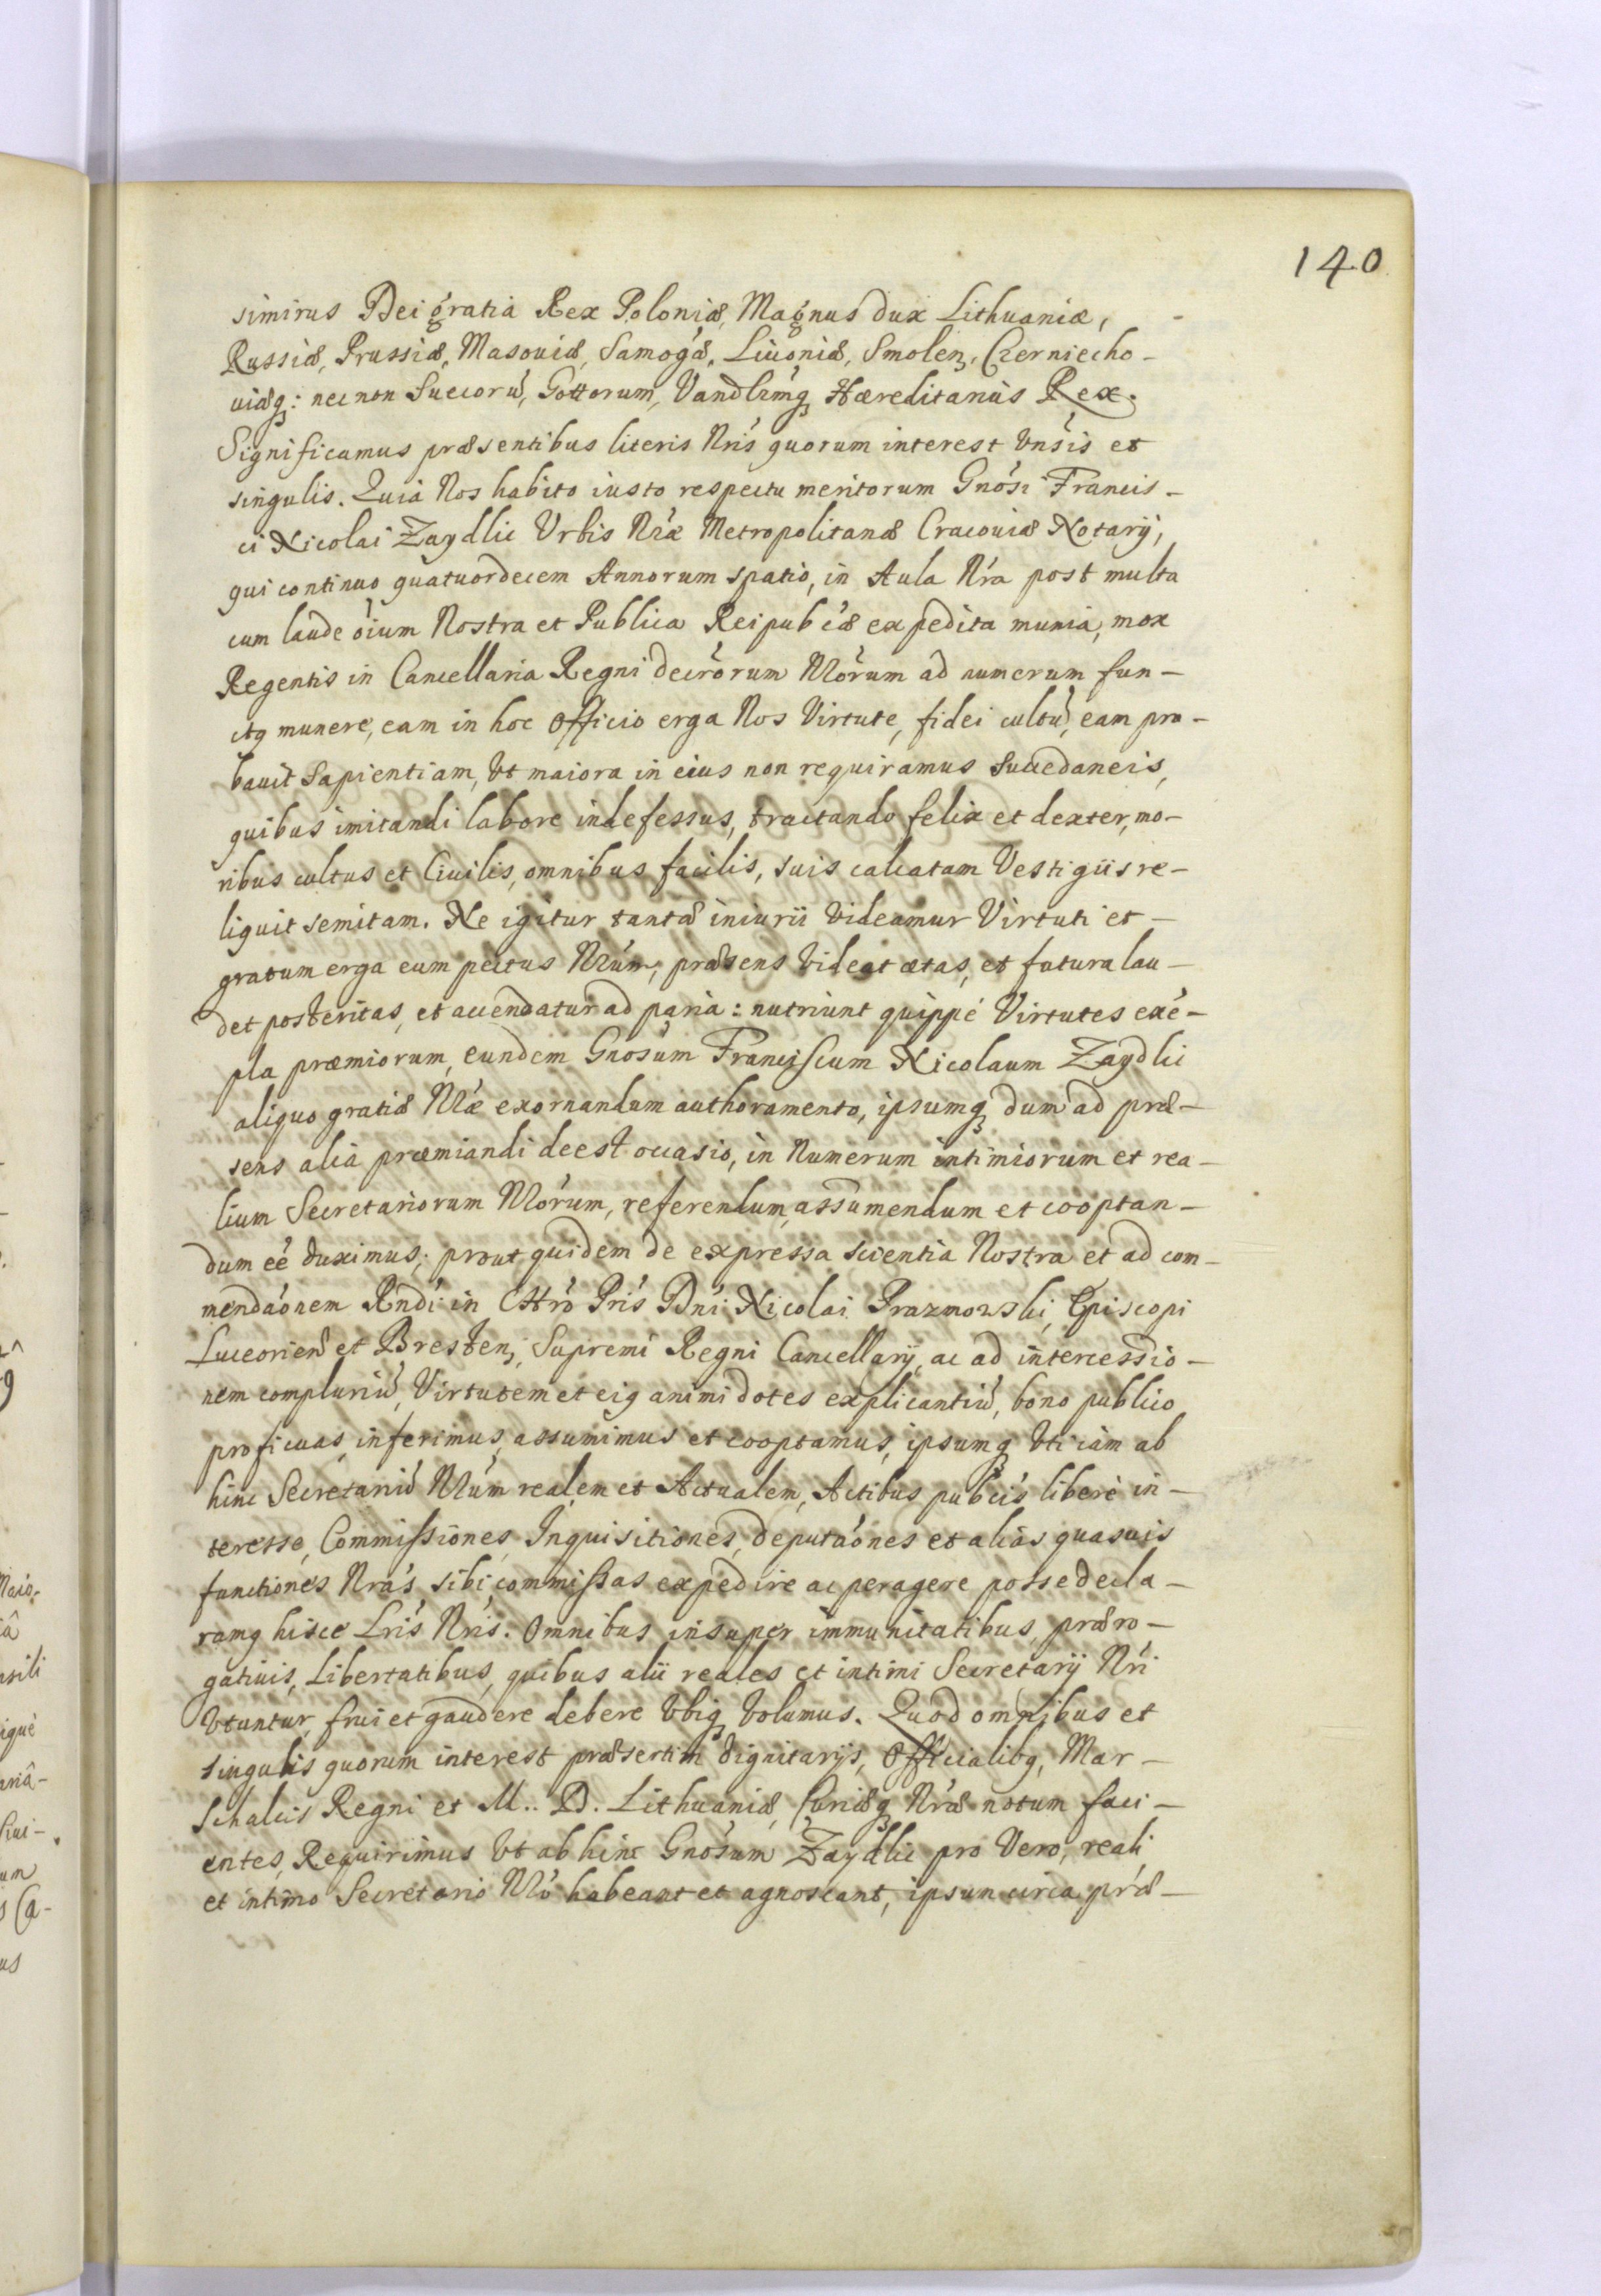 140
simirus Dei gratia Rex Poloniæ, Magnus dux Lithuaniæ,
Russiæ, Prussiæ, Masouiæ, Samogæ, Liuoniæ, Smolenʒ, Czerniecho-
uiæqʒ: nec non Suecorũ, Gottorum, Vandlrmqʒ Hæreditarius Rex.
Significamus præsentibus literis Nris quorum interest Vnsis et
singulis. Quia Nos habito iusto respectu meritorum Gnosi Francis-
ci Nicolai Zaydlic Vrbis Nræ Metropolitanæ Cracouiæ Notarij,
qui continuo quatuordecem Annorum spatio, in Aula Nra post multa
cum laude oium Nostra et Publica Reipubcæ expedita munia, mox
Regentis in Cancellaria Regni decrorum Nrorum ad numerum fun-
ctq munere, eam in hoc Officio erga Nos Virtute, fidei cultũ, eam pro-
bauit Sapientiam, Vt maiora in eius non requiramus succedaneis,
quibus imitandi labore indefessus, tractando felix et dexter, mo-
ribus cultus et Ciuilis, omnibus facilis, suis calcatam Vestigiis re-
liquit semitam. Ne igitur tantæ iniurii Videamur Virtuti et-
gratum erga eum pectus Nrum, præsens Videat ætas, et futura lau-
det posteritas, et accendatur ad paria: nutriunt quippé Virtutes exé-
pla præmiorum, eundem Gnosum Franciscum Nicolaum Zaydlic
aliquo gratiæ Nræ exornandum authoramento, ipsumqʒ dum ad præ-
sens alia præmiandi deest occasio, in Numerum intimiorum et rea-
lium Secretariorum Nrorum, referendum, assumendum et cooptan-
dum eé duximus; prout quidem de expressa scientia Nostra et ad com-
mendaonem Rndi in Chro Pris Dni Nicolai Prazmowski, Episcopi
Luceorien et Brestenʒ, Supremi Regni Cancellarij, ac ad intercessio-
nem compluriũ, Virtutem et eiq animi dotes explicantiũ, bono publico
proficuas, inferimus, assumimus et cooptamus, ipsumqʒ Vti iam ab
hinc Secretariũ Nrum realem et Actualem, Actibus pubcis liberè in-
teresse, Commissiones, Inquisitiones, deputaones et alias quasuis
functiones Nras sibi commissas expedire ac peragere posse decla-
ramq hisce Lris Nris. Omnibus insuper immunitatibus, præro-
gatiuis, Libertatibus, quibus alii reales et intimi Secretarij Nri
Vtuntur, frui et gaudere debere Vbiqʒ Volumus. Quod omnibus et
singulis quorum interest præsertim dignitarijs, Officialibq, Mar-
schalcis Regni et M. D. Lithuaniæ, Curiæqʒ Nræ notum faci-
entes, Requirimus Vt ab hinc Gnosum Zaydlic pro Vero, reali
et intimo Secretario Nro habeant et agnoscant, ipsum circa præ-